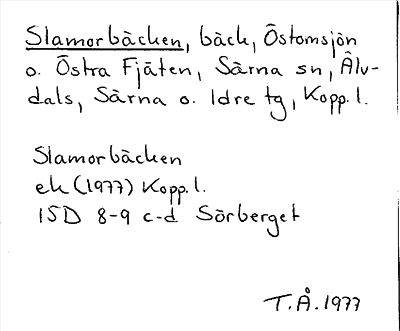 Slamorbäcken, bäck, Östomsjön
o. Östra Fjäten, Särna sn, Älv-
dals, Särna o. Idre tg, Kopp. l.
Slamorbäcken
ek (1977) Kopp. l.
15D 8-9 c-d Sörberget
T.Å. 1977